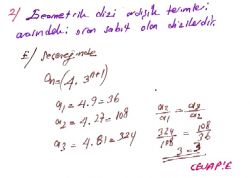 2/ Geometrik dizi ardışık terimleri
arasındaki oran sabit olan dizilerdir.
E/ Seçeneğinde
an=(4.3^(n+1))
a1 = 4.9=36
a2 = 4.27=108
a3 = 4.81=324
a2/a1 = a3/a2
324/108 = 108/36
3=3
CEVAP:E